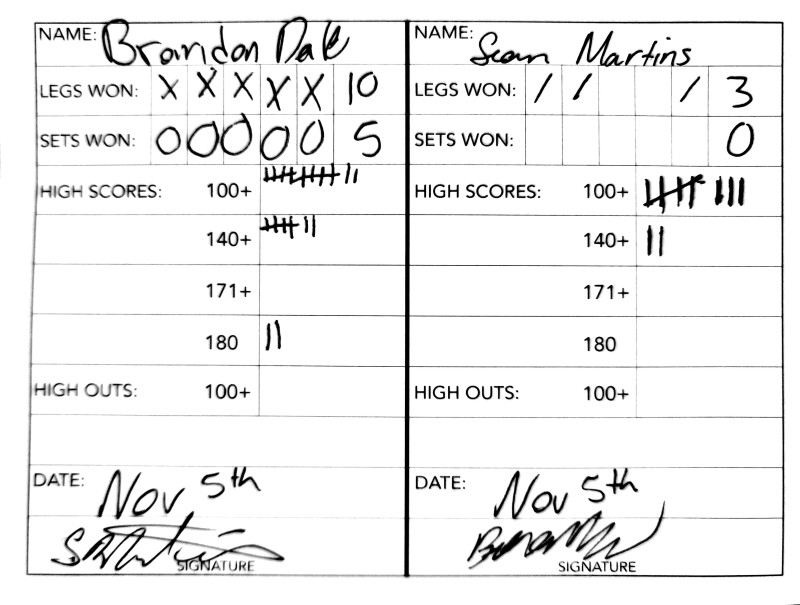 NAME: Brandon Dale
LEGS WON: X X X X X 10
SETS WON: O O O O O 5
HIGH SCORES: 100+
140+
171+
180
HIGH OUTS: 100+
DATE: Nov 5th
SIGNATURE
NAME: Sean Martins
LEGS WON: / / / 3
SETS WON: 0
HIGH SCORES: 100+
140+
171+
180
HIGH OUTS: 100+
DATE: Nov 5th
SIGNATURE